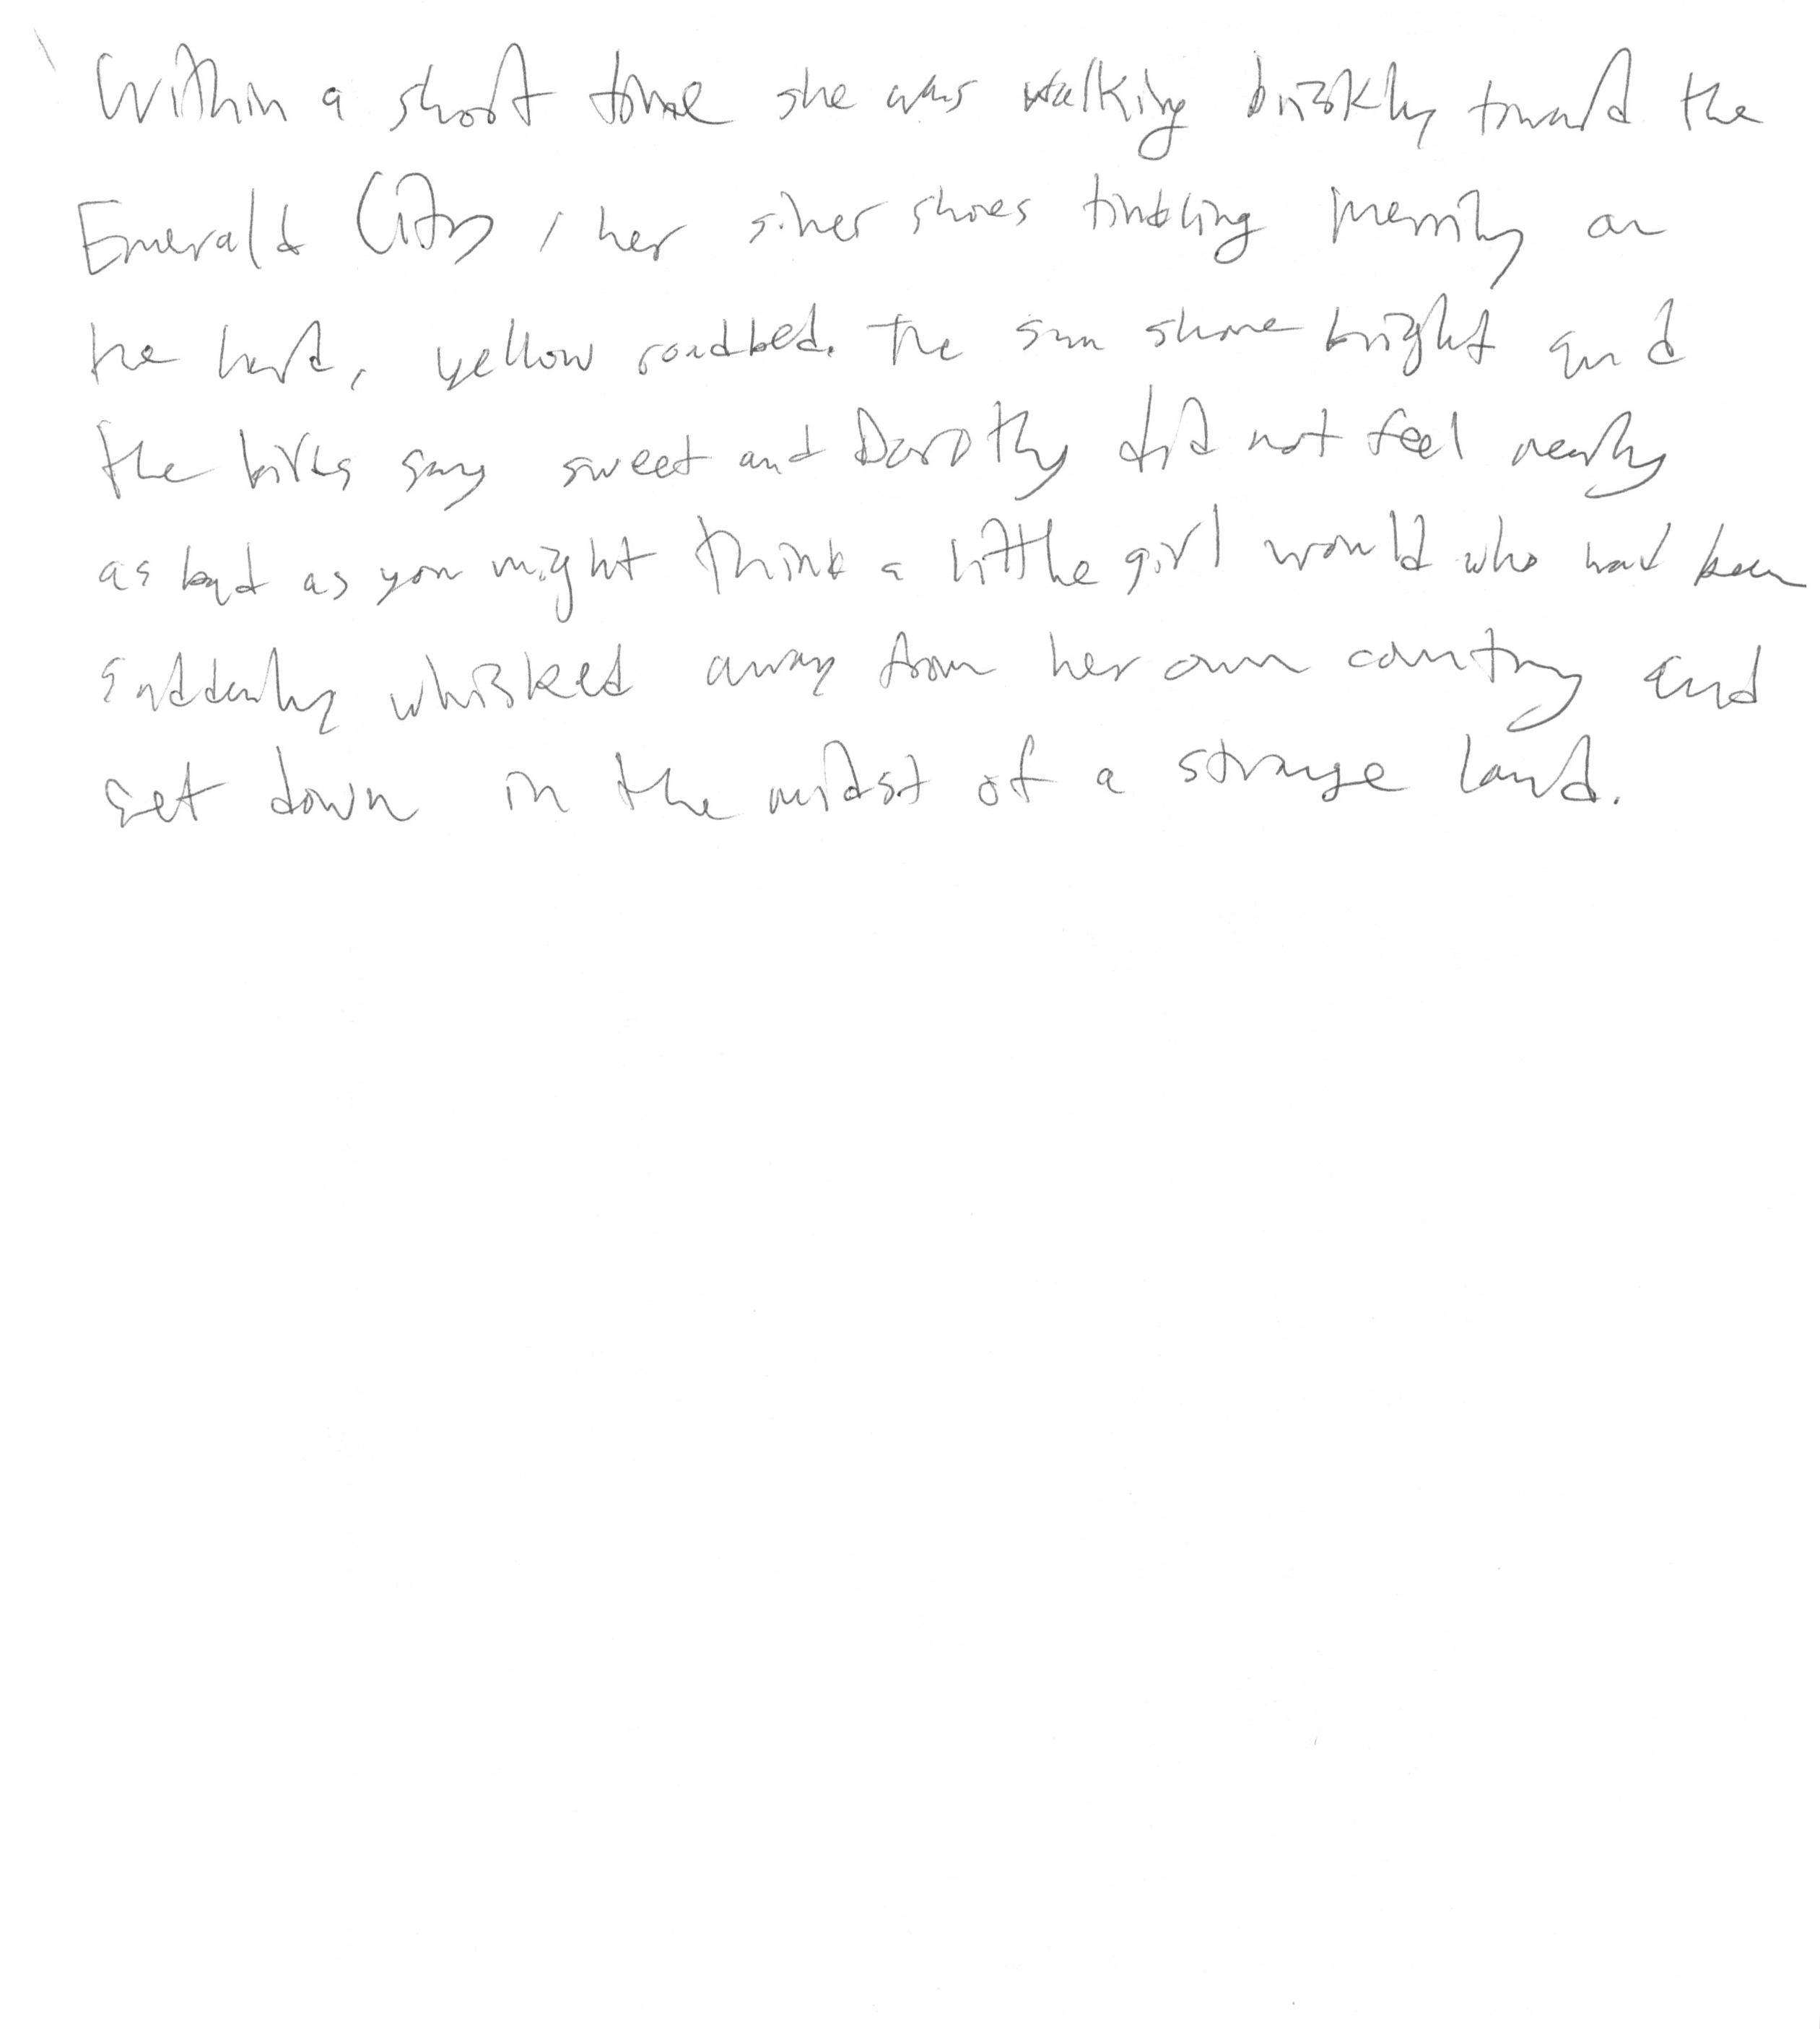 Within a short time she was walking briskly toward the
Emerald City, her silver shoes tinkling merrily on
he hard, yellow roadbed. The sun shone bright and
the birds sang sweet and Dorothy did not feel nearly
as bad as you might think a little girl would who had been
suddenly whisked away from her own country and
set down in the midst of a strange land.